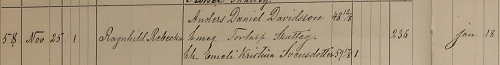 Anders Daniel Davidsson 48 12/8
58 Nov. 25 1 Ragnhild Rebecka hmeg Torlarp Skatteg. 236 jan 18
hh. Emeli Kristina Svensdotter 59 1